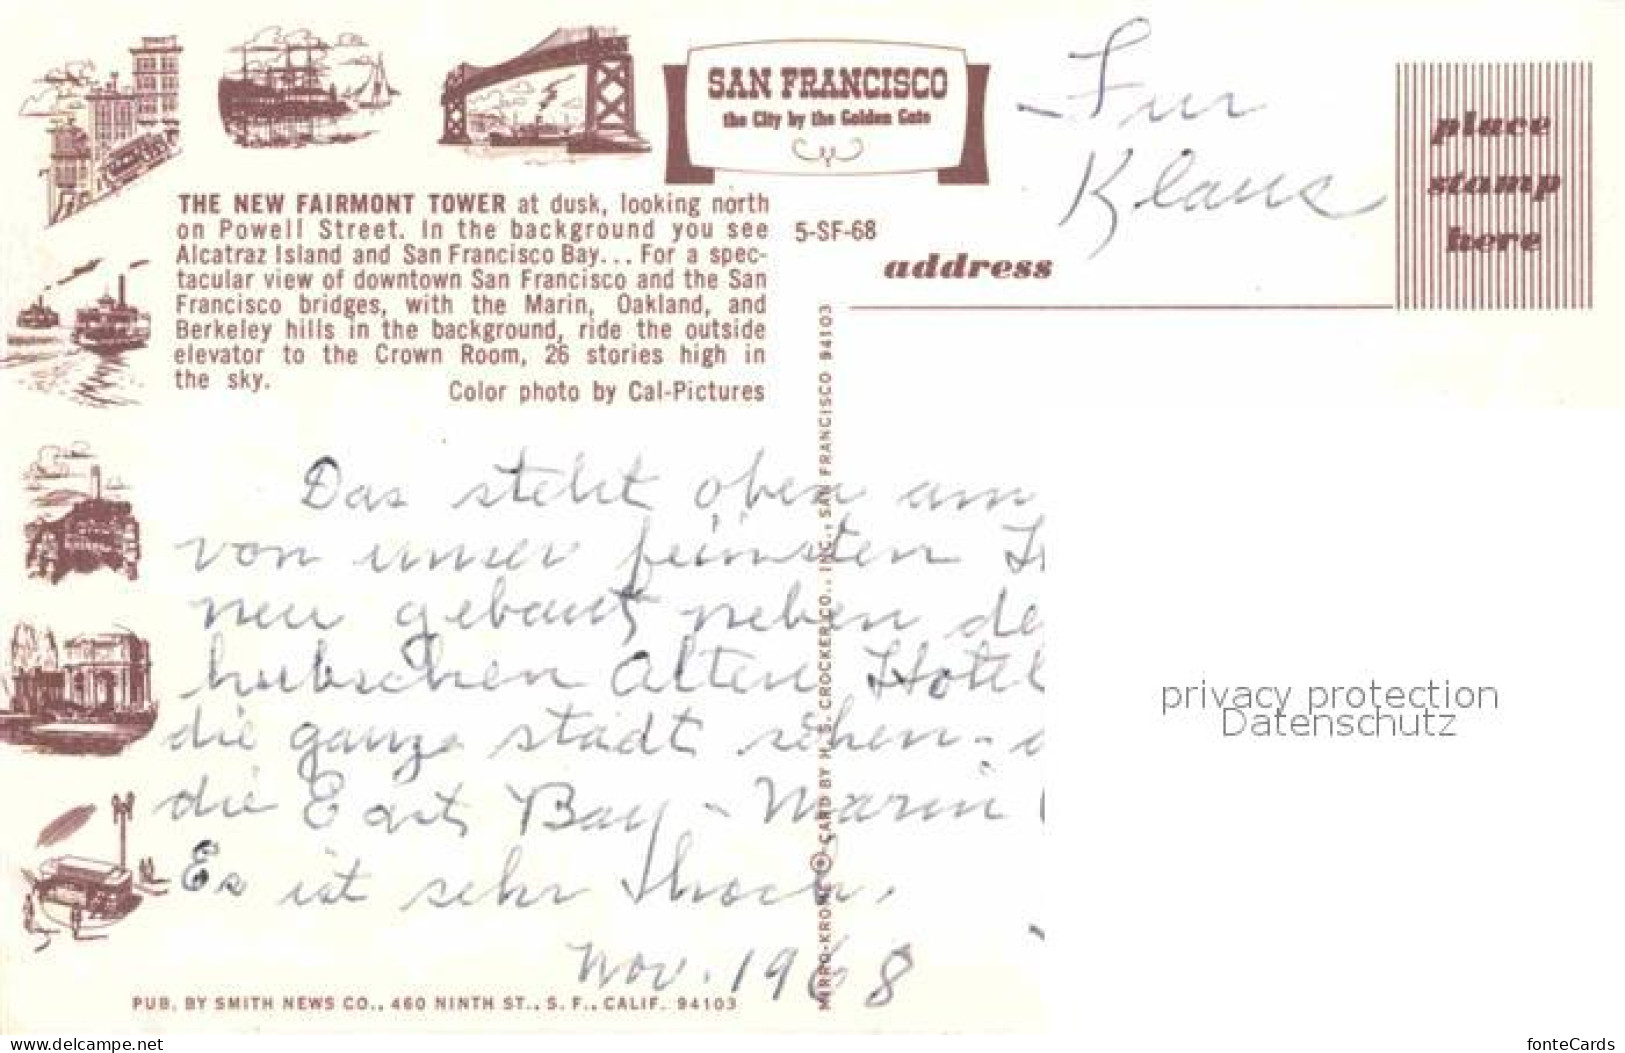 SAN FRANCISCO
the City by the Golden Gate
Fur
Klaus
place
stamp
here
THE NEW FAIRMONT TOWER at dusk, looking north
on Powell Street. In the background you see
Alcatraz Island and San Francisco Bay... For a spec-
tacular view of downtown San Francisco and the San
Francisco bridges, with the Marin, Oakland, and
Berkeley hills in the background, ride the outside
elevator to the Crown Room, 26 stories high in
the sky.
Color photo by Cal-Pictures
5-SF-68
address
MIRRO-KROME CARD BY H. S. CROCKER CO., INC., SAN FRANCISCO 94103
Das steht oben am
von unser feinsten
neu gebaut neben de
hubschen Alten Hotel
die ganze stadt sehen -
die East Bay - Marin
Es ist sehr hoch.
Nov. 1968
PUB. BY SMITH NEWS CO., 460 NINTH ST., S. F., CALIF. 94103
privacy protection
Datenschutz
www.delcampe.net
fonteCards